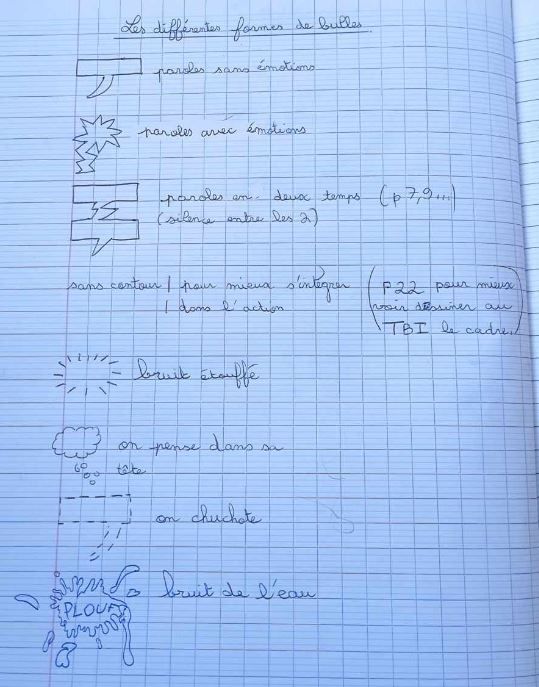 Les différentes formes de bulles.
paroles sans émotions
paroles avec émotions
paroles en deux temps (p 7, 9...)
(silence entre les 2)
sans contour | pour mieux s'intégrer (P22 pour mieux
| dans l'action voir dessiner au
TBI le cadre.)
bruit étouffé
on pense dans sa
tête
on chuchote
PLOUF
bruit de l'eau